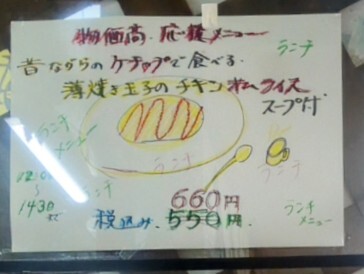 物価高 応援メニュー
ランチ
昔ながらの ケチャップで食べる
薄焼き玉子の チキンオムライス
スープ付
ランチ
メニュー
ランチ
ランチ
ランチ
~
14:30まで
660円
税込み 550円
ランチ
メニュー